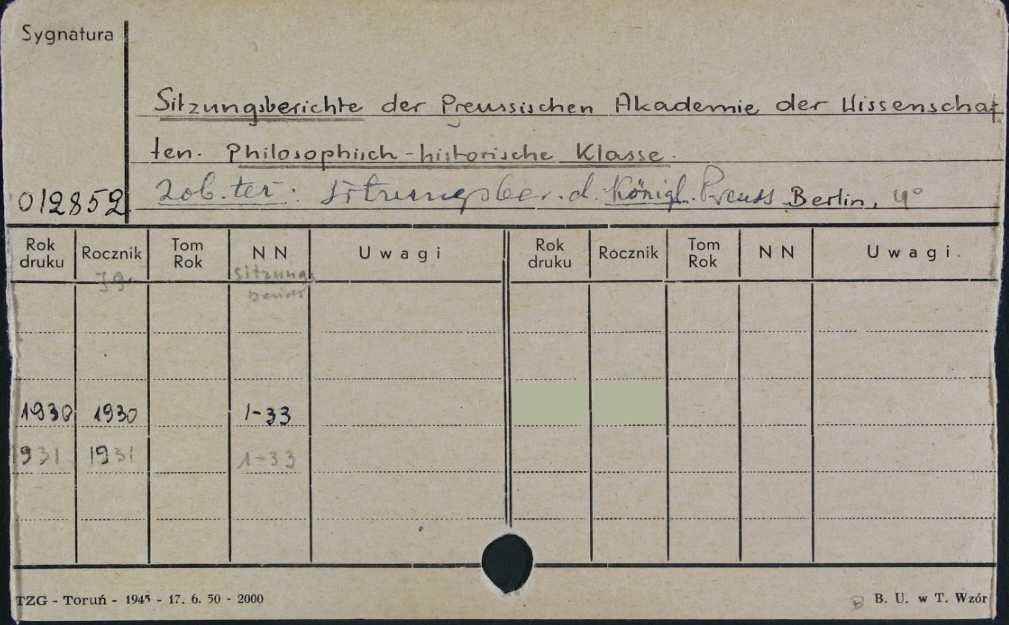 Sygnatura
Sitzungsberichte der Preussischen Akademie der Wissenschaf
ten. Philosophisch-historische Klasse.
012852 Zob. też: Sitzungsber. d. Königl. Preuss Berlin, 4°
Rok druku Rocznik Tom Rok NN Uwagi Rok druku Rocznik Tom Rok NN Uwagi.
Jg. Sitzungs
1930 1930 1-33
931 1931 1-33
TZG - Toruń - 1945 - 17. 6. 50 - 2000 B. U. w T. Wzór